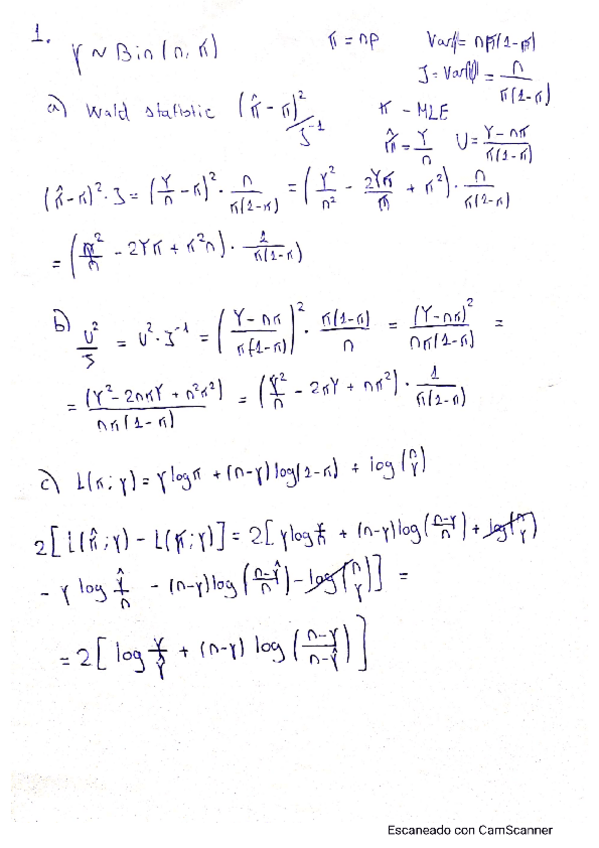 1.
Y ~ Bin(n, π)
π = np Var() = nπ(1-π)
J = Var(U) = n/π(1-π)
a) Wald statistic (π̂ - π)²/J⁻¹
π - MLE
π̂ = Y/n U = Y-nπ/π(1-π)
(π̂-π)²·J = (Y/n - π)² · n/π(1-π) = (Y²/n² - 2Yπ/n + π²) · n/π(1-π)
= (Y²/n - 2Yπ + π²n) · 1/π(1-π)
b) U²/J = U²·J⁻¹ = (Y-nπ/π(1-π))² · π(1-π)/n = (Y-nπ)²/nπ(1-π) =
= (Y²-2nπY + n²π²)/nπ(1-π) = (Y²/n - 2πY + nπ²) · 1/π(1-π)
c) L(π;y) = y log π + (n-y) log(1-π) + log(n y)
2[L(π̂;y) - L(π;y)] = 2[y log y/n + (n-y) log(n-y/n) + log(n y)
- y log ŷ/n - (n-y) log(n-ŷ/n) - log(n y)] =
= 2[log y/ŷ + (n-y) log(n-y/n-ŷ)]
Escaneado con CamScanner